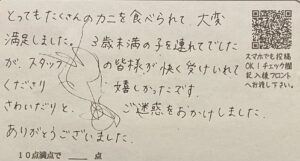 とってもたくさんのカニを食べられて 大変
満足しました。 3歳未満の子を連れてでした
が、スタッフ の皆様が快く受けいれて
くださり 嬉しかったです。
さわいだりと、 ご迷惑をおかけしました。
ありがとうございました。
10点満点で 点
スマホでも投稿
OK!チェック欄
記入後フロント
へお渡し下さい。